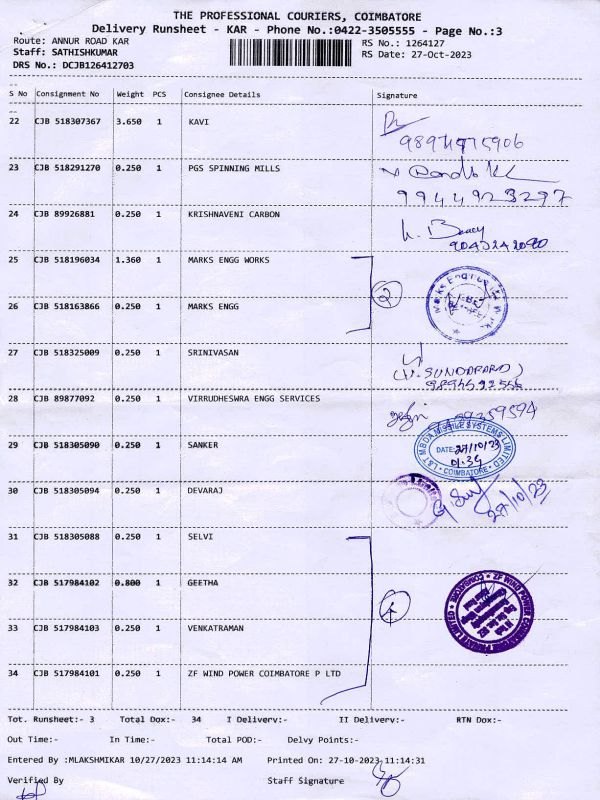 THE PROFESSIONAL COURIERS, COIMBATORE
Delivery Runsheet - KAR - Phone No.:0422-3505555 - Page No.:3
Route: ANNUR ROAD KAR
RS No.: 1264127
Staff: SATHISHKUMAR
RS Date: 27-Oct-2023
DRS No.: DCJB126412703
S No Consignment No Weight PCS Consignee Details Signature
22 CJB 518307367 3.650 1 KAVI
23 CJB 518291270 0.250 1 PGS SPINNING MILLS
9944923297
24 CJB 89926881 0.250 1 KRISHNAVENI CARBON
25 CJB 518196034 1.360 1 MARKS ENGG WORKS
2
26 CJB 518163866 0.250 1 MARKS ENGG
27 CJB 518325009 0.250 1 SRINIVASAN
28 CJB 89877092 0.250 1 VIRRUDHESWRA ENGG SERVICES
29 CJB 518305090 0.250 1 SANKER
L&T MBDA MISSILE SYSTEMS LIMITED
DATE: 27/10/23
COIMBATORE
30 CJB 518305094 0.250 1 DEVARAJ
27/10/23
31 CJB 518305088 0.250 1 SELVI
32 CJB 517984102 0.800 1 GEETHA
4
ZF WIND POWER COIMBATORE PRIVATE LIMITED
33 CJB 517984103 0.250 1 VENKATRAMAN
34 CJB 517984101 0.250 1 ZF WIND POWER COIMBATORE P LTD
Tot. Runsheet:- 3 Total Dox:- 34 I Delivery:- II Delivery:- RTN Dox:-
Out Time:- In Time:- Total POD:- Delvy Points:-
Entered By :MLAKSHMIKAR 10/27/2023 11:14:14 AM Printed On: 27-10-2023 11:14:31
Verified By Staff Signature